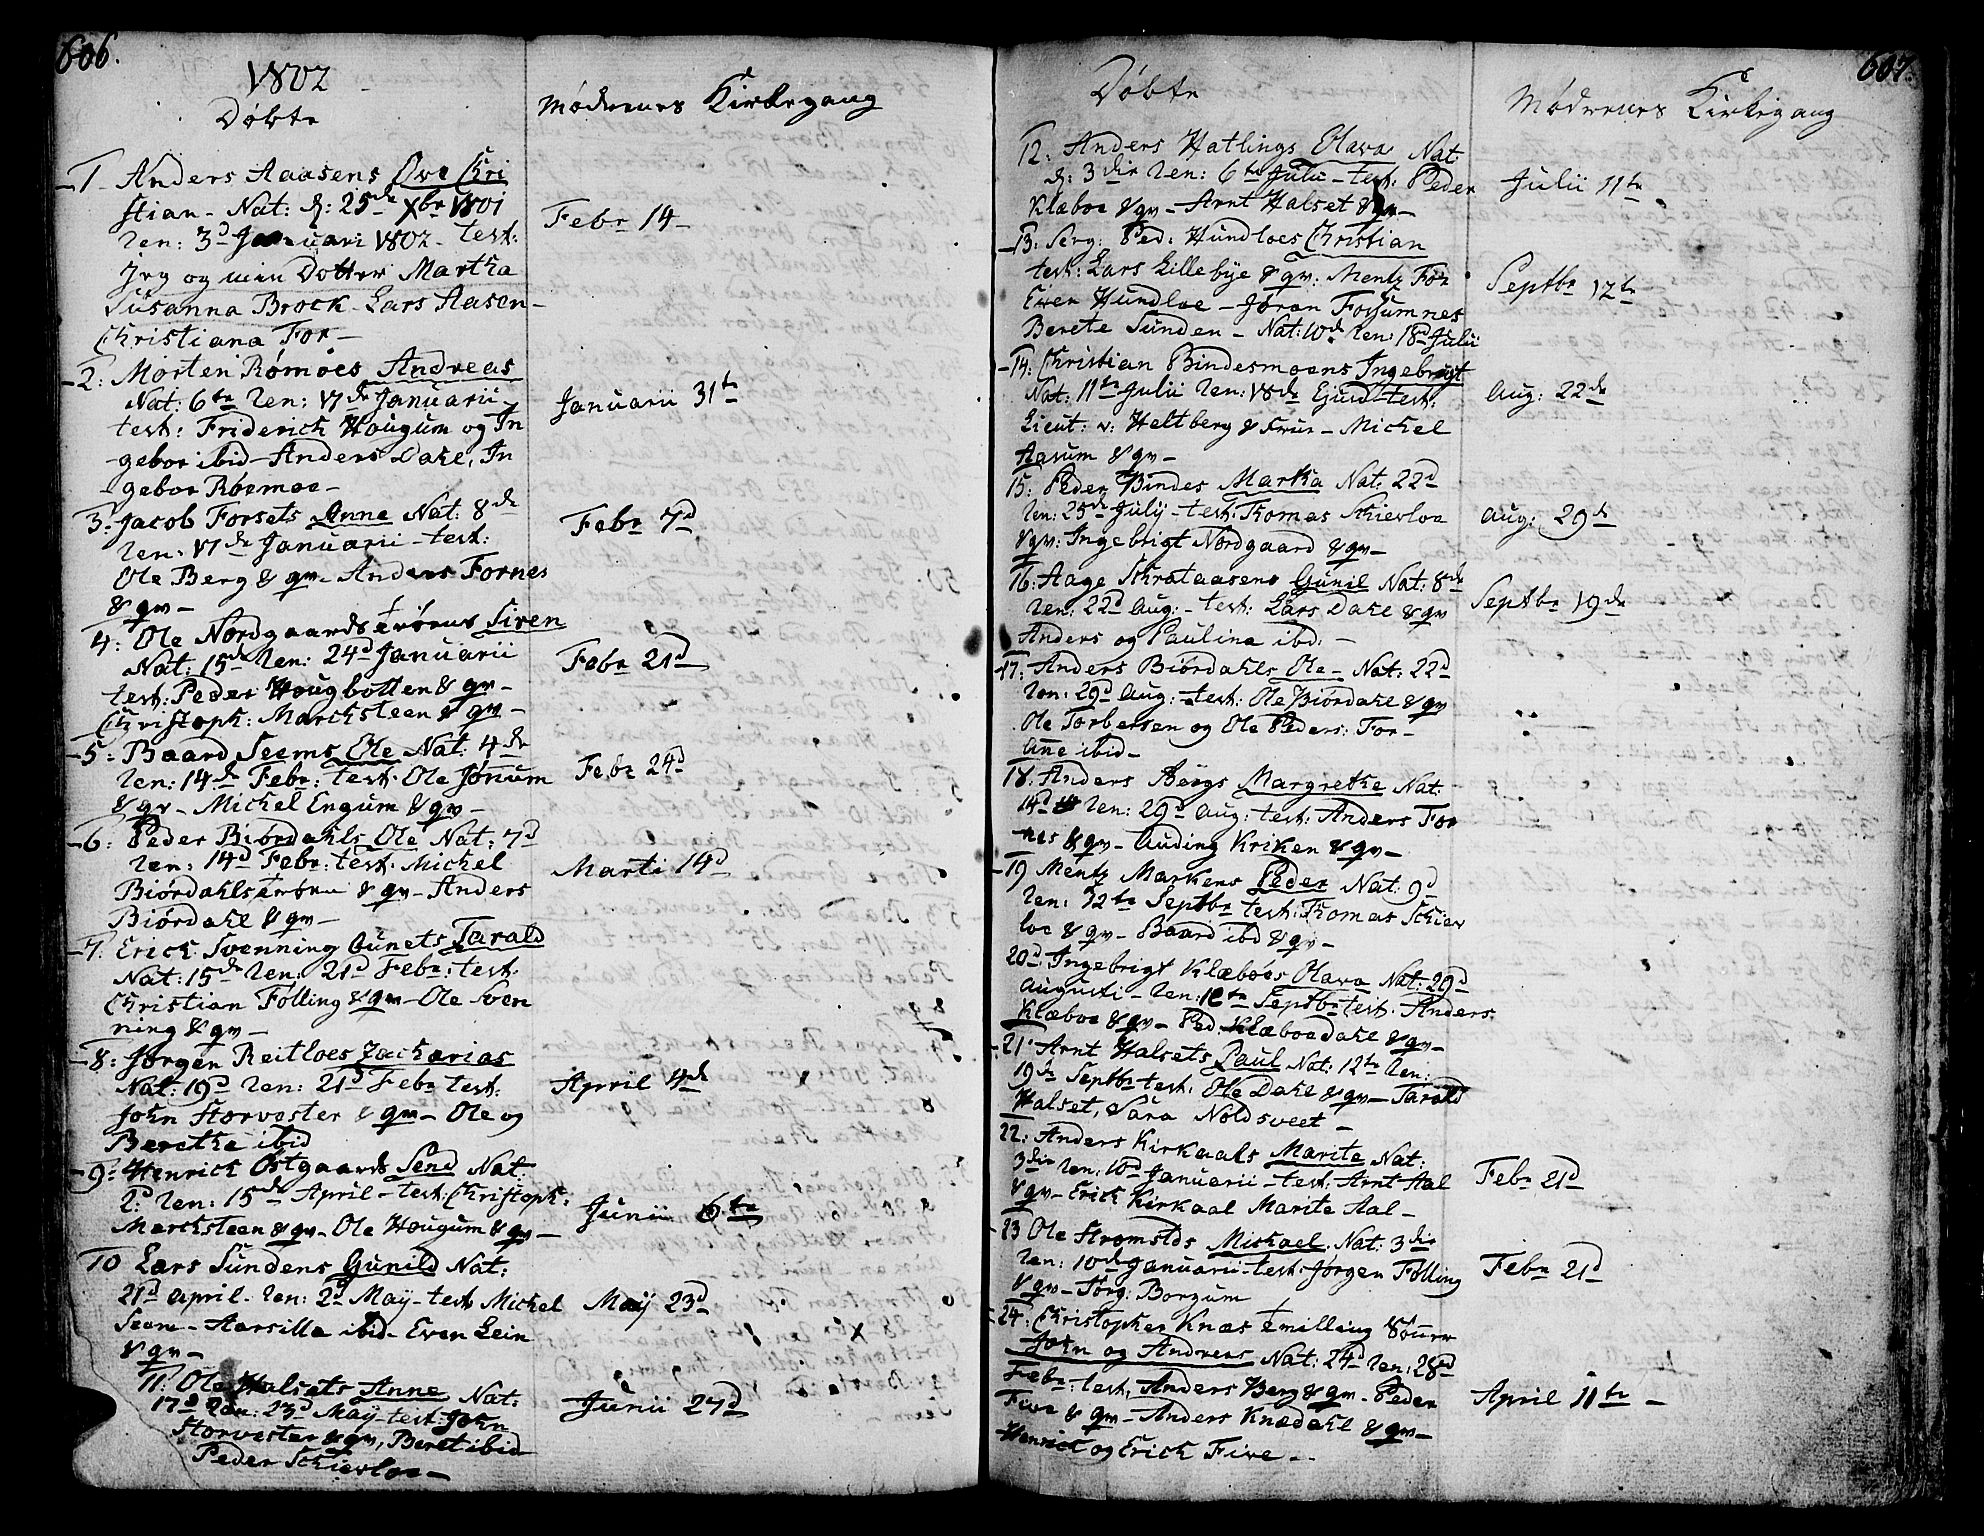 606.
1802
Døbte
Mødrenes Kirkegang
1. Anders Aasens Ove Chri
stian - Nat: d: 25de Xbr 1801
ren: 3d Januari 1802 - test:
Jeg og min Dotter Martha
Susanna Brock - Lars Aasen -
Christiana For -
Febr 14 -
2: Morten Rømoes Andreas
Nat: 6te ren: 17de Januarii -
test: Friderich Hougum og In
gebor ibid - Anders Dahl, In
gebor Røemoe -
Januarii 31te
3: Jacob Forsets Anne Nat: 8de
ren: 17de Januarii - test:
Ole Berg & qv - Anders Fornes
& qv -
Febr 7d
4: Ole Nordgaards Siren
Nat: 15de ren: 24d Januarii
test: Peder Hougbotten & qv -
Christoph: Marchsteen & qv -
Febr 21d
5: Baard Seems Ole Nat: 4de
ren: 14de Febr: test: Ole Jønum
& qv - Michel Engum & qv -
Febr 24d
6: Peder Biørdahls Ole Nat: 7d
ren: 14d Febr: test: Michel
Biørdahls & qv - Anders
Biørdahl & qv -
Marti 14d
7. Erich Svenning Aunets Tarald
Nat: 15de ren: 21d Febr: test:
Christian Følling & qv - Ole Sven
ning & qv -
8: Jørgen Reitloes Zacharias
Nat: 19d ren: 21d Febr test:
John Storvester & qv - Ole og
Berethe ibid
April 4de
9: Henrich Østgaards Send Nat:
2d ren: 15de April - test: Christoph:
Marchsteen & qv - Ole Hougum & qv -
Junii 6te
10 Lars Sundens Gunild Nat:
21d april - ren: 2d Maÿ - test: Michel
Seem - Aarsilla ibid - Even Lein
& qv -
Maÿ 23d
11: Ole Halsets Anne Nat:
17d ren: 23d Maÿ - test: John
Storvester & qv, Beret ibid
Peder Schierloe -
Junii 27d
607.
Døbte
Mødrenes Kirkegang
12: Anders Hatlings Olava Nat:
d: 3die ren: 6te Julii - test: Peder
Klæboe & qv - Arnt Halset & qv -
Julii 11te
13: Serg: Ped: Hundloes Christian
test: Lars Lillebye & qv: Mentz For
Even Hundloe - Jøran Forsumnes
Berete Sunden - Nat: 10de ren: 18d Julii
Septbr 12te
14: Christian Bindesmoens Ingebrigt
Nat: 11te Julii ren: 18de Ejusd: test:
Lieut: v: Heltberg & Frue - Michel
Aasum & qv -
Aug: 22de
15: Peder Bindes Martha Nat: 22d
ren: 25de Julÿ - test: Thomas Schierloe
& qv: Ingebrigt Nordgaard & qv -
Aug: 29de
16: Aage Skrataasens Gunil Nat: 8de
ren: 22d Aug: - test: Lars Dahl & qv
Anders og Paulina ibd: -
Septbr 19de
17: Anders Biørdahls Ole - Nat: 22d
ren: 29d Aug: - test: Ole Biørdahl & qv
Ole Torbersen og Ole Peders: For -
Anne ibid -
18: Anders Bergs Margrethe Nat:
14d ren: 29d Aug: test: Anders For
nes & qv - Auding Kriken & qv -
19 Mentz Markens Peder Nat: 9d
ren: 12te Septbr test: Thomas Schier
loe & qv - Baard ibd & qv -
20d Ingebrigt Klæboes Olava Nat: 29d
Augusti - ren: 12te Septbr test: Anders
Klæboe & qv - Ped: Klæboedahl & qv -
21: Arnt Halsets Paul Nat: 12te ren:
19de Septbr test: Ole Dahl & qv - Tarald
Halset, Sara Noldsveet -
22: Anders Kirkaals Marite Nat:
3die ren: 10d Januarii - test: Arnt Aal
& qv - Erich Kirkaal Marite Aal -
Febr 21d
23 Ole Strømslds Michael: Nat: 3die
ren: 10de Januarii - test: Jørgen Følling
& qv - Jørg: Borgum
Febr 21d
24: Christopher Knæs
John og Andreas Nat: 24d ren: 28d
Febr: test: Anders Berg & qv - Peder
Five & qv - Anders Knædahl & qv -
Henrich og Erich Five -
April 11te -